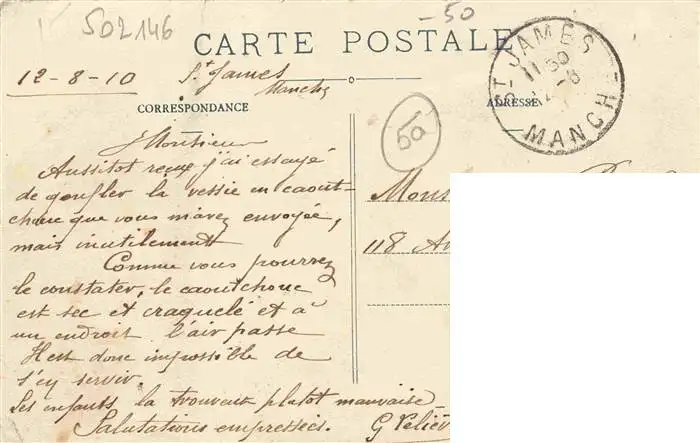 502146
-50
CARTE POSTALE
12-8-10 St James
Manche
CORRESPONDANCE
ADRESSE
ST JAMES
11 50
12 -8
MANCH
50
Monsieur
Aussitot reçue j'ai essayé
de gonfler la vessie en caout-
chouc que vous m'avez envoyée,
mais inutilement
Comme vous pourrez
le constater, le caoutchouc
est sec et craquelé et à
un endroit l'air passe
Il est donc impossible de
s'en servir.
Les enfants la trouvent plutot mauvaise
Salutations empressées. G
Mons
118 Av